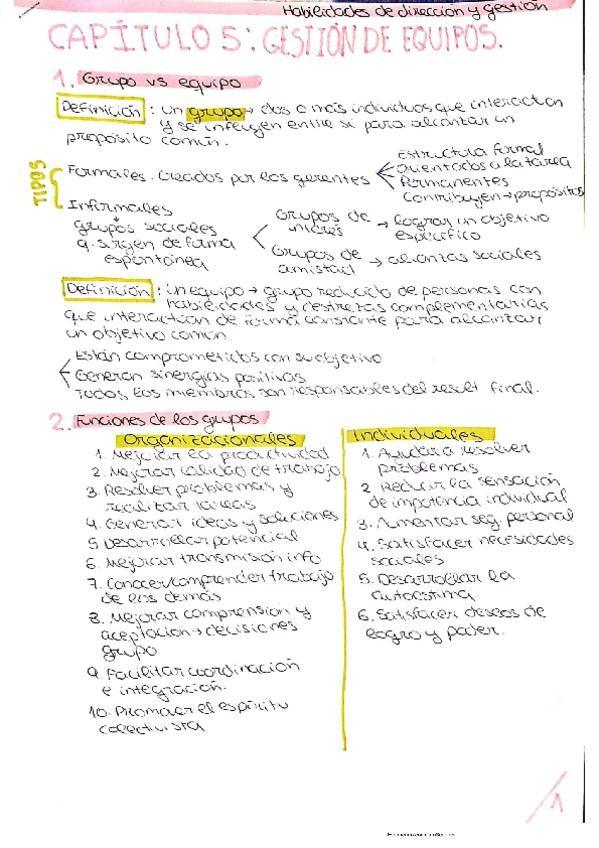 Habilidades de dirección y gestión
CAPÍTULO 5: GESTIÓN DE EQUIPOS.
1. Grupo vs equipo
Definición: un grupo → dos o más individuos que interactan
y se influyen entre sí para alcanzar un
propósito común.
TIPOS
Formales. Creados por los gerentes
Estructura formal
Orientados a la tarea
Permanentes
Contribuyen → propósitos
Informales
↓
grupos sociales
q. surgen de forma
espontánea
Grupos de interés → lograr un objetivo
específico
Grupos de amistad → alianzas sociales
Definición: un equipo → grupo reducido de personas con
habilidades y destrezas complementarias
que interactúan de forma constante para alcanzar
un objetivo común.
Están comprometidos con su objetivo
Generan sinergias positivas
Todos los miembros son responsables del result final.
2. Funciones de los grupos
Organizacionales
1. Mejorar la productividad
2. Mejorar calidad de trabajo
3. Resolver problemas y
realizar tareas
4. Generar ideas y soluciones
5 Desarrollar potencial
6. Mejorar transmisión info
7. Conocer/comprender trabajo
de los demás
8. Mejorar comprensión y
aceptación → decisiones
grupo
9. Facilitar coordinación
e integración.
10. Promover el espíritu
colectivista
Individuales
1. Ayudar a resolver
problemas
2. Reducir la sensación
de impotencia individual
3. Aumentar seg. personal
4. Satisfacer necesidades
sociales
5. Desarrollar la
autoestima
6. Satisfacer deseos de
logro y poder.
1